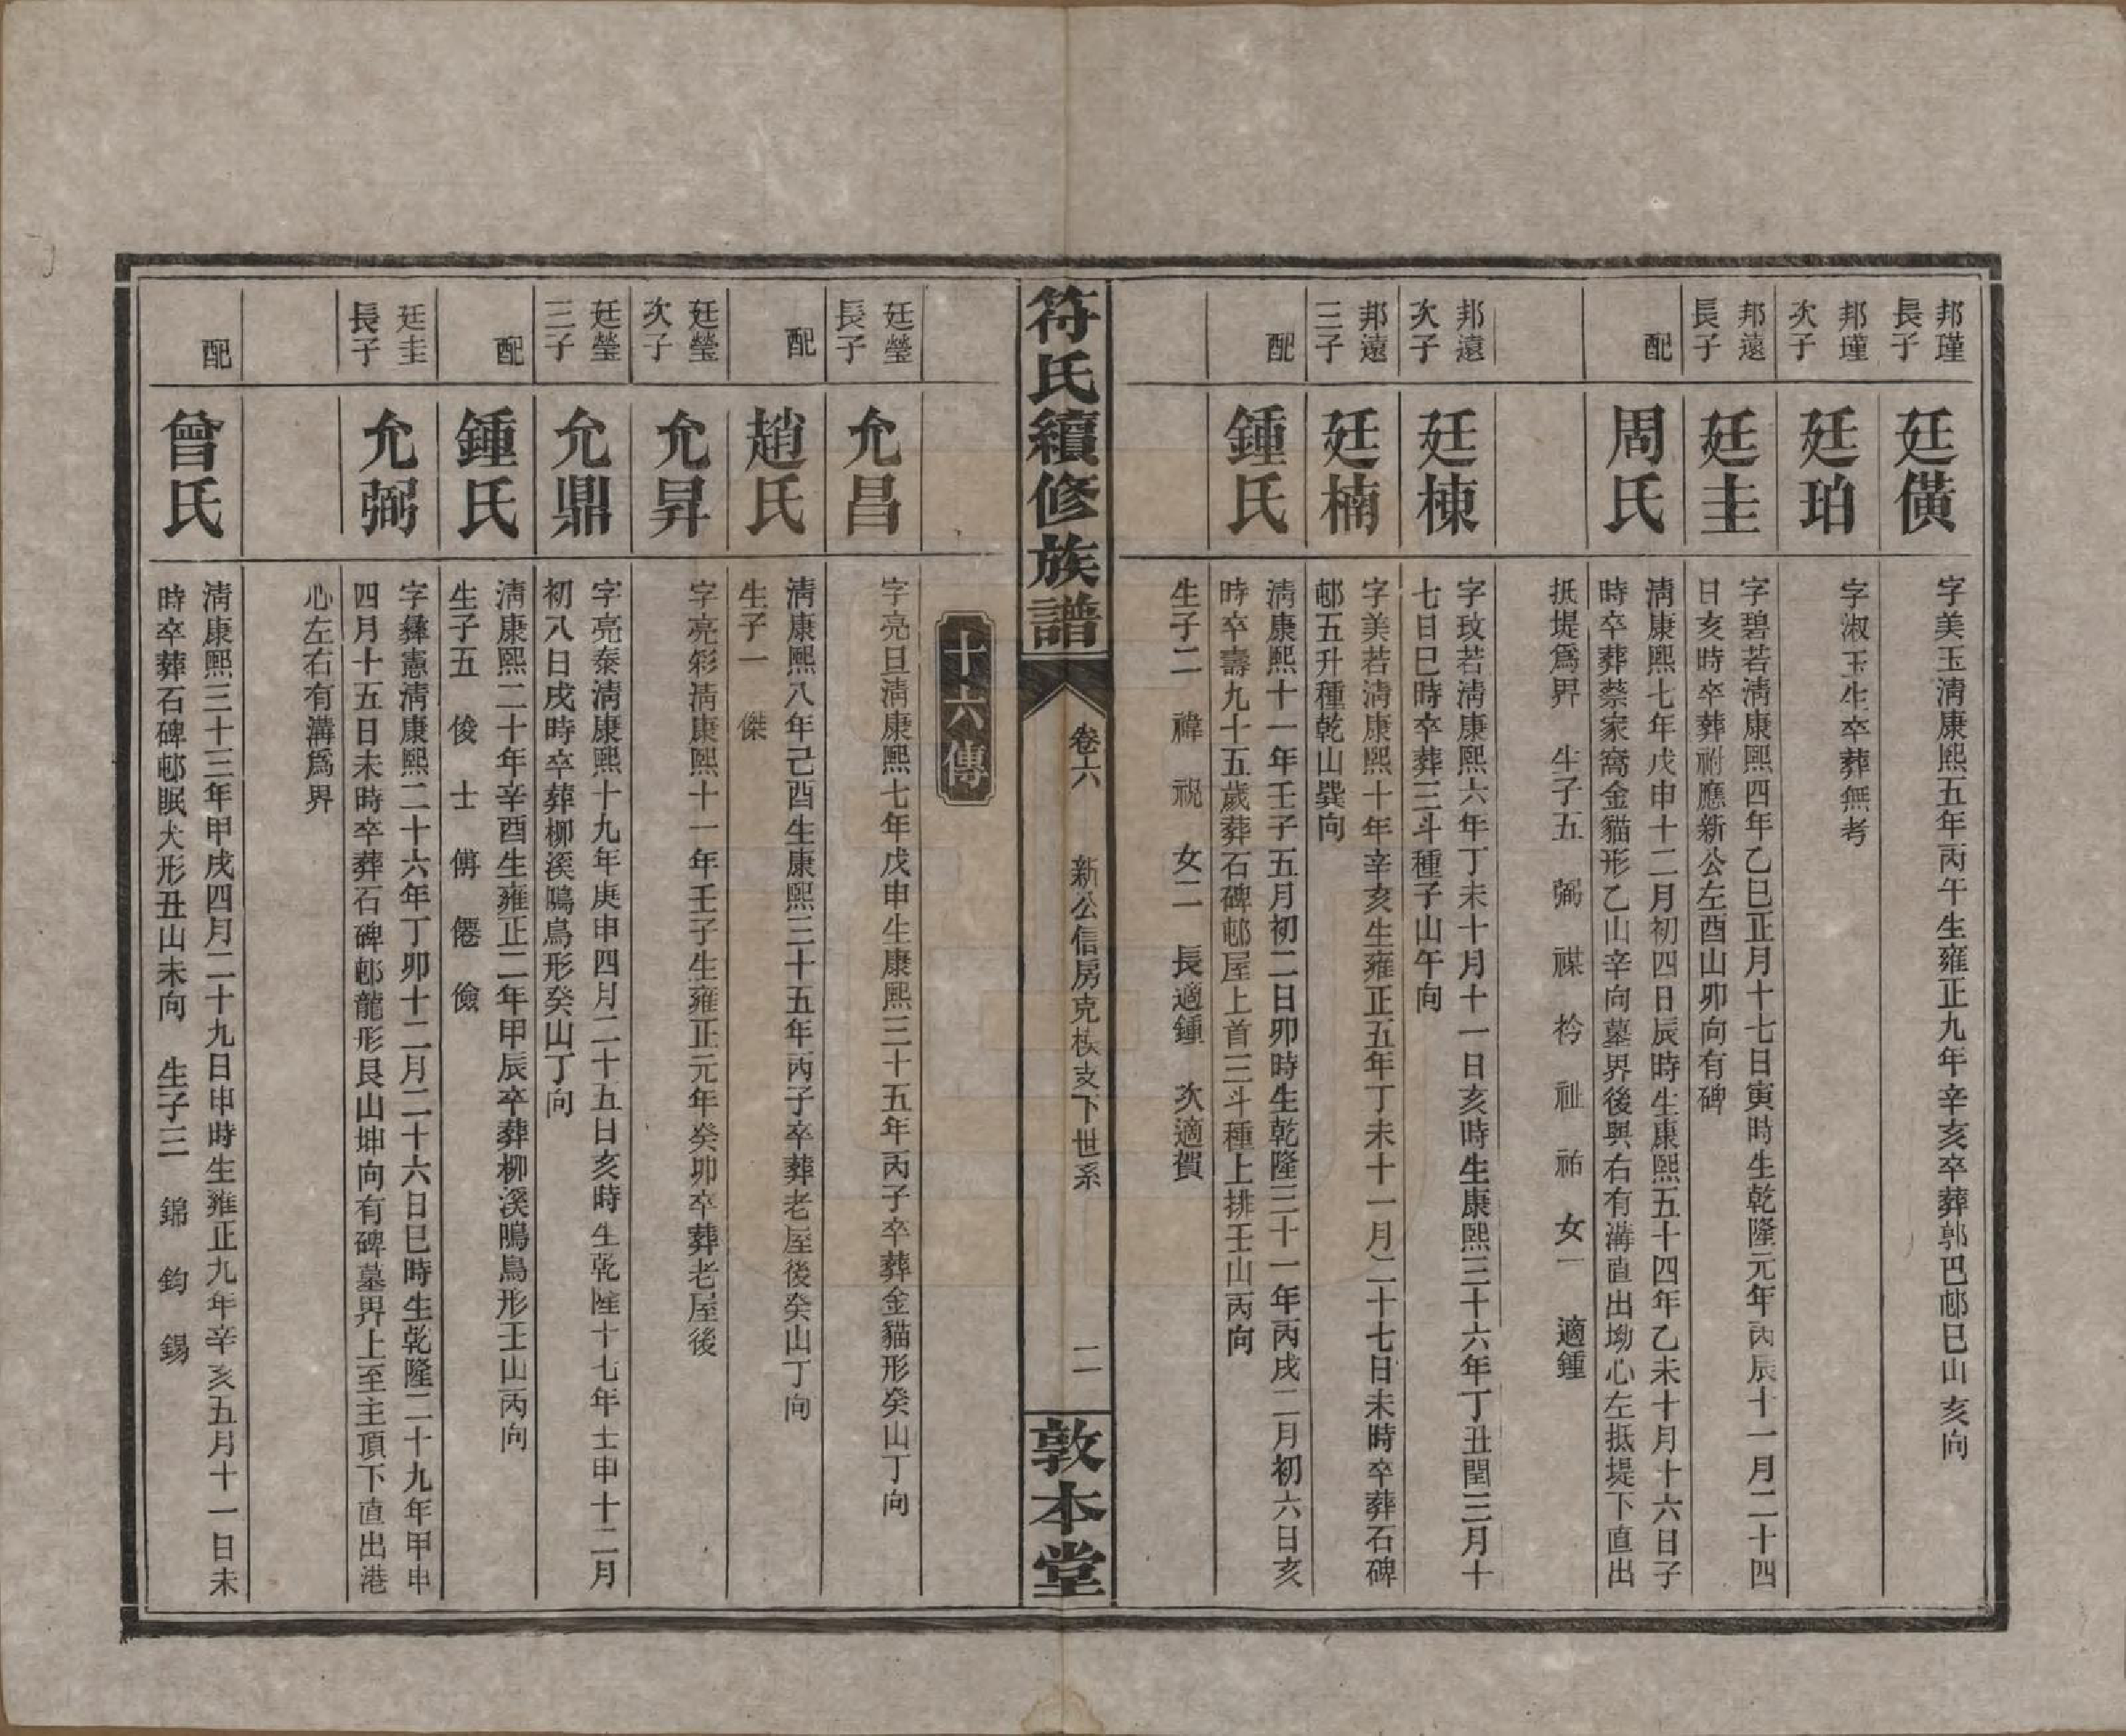 邦瑾
長子
廷僙
字美玉清康熙五年丙午生雍正九年辛亥卒葬郭巴邨巳山亥向
邦瑾
次子
廷珀
字淑玉生卒葬無考
邦遠
長子
廷圭
字碧若清康熙四年乙巳正月十七日寅時生乾隆元年丙辰十一月二十四
日亥時卒葬祔應新公左酉山卯向有碑
配
周氏
清康熙七年戊申十二月初四日辰時生康熙五十四年乙未十月十六日子
時卒葬蔡家窩金貓形乙山辛向墓界後與右有溝直出坳心左抵堤下直出
抵堤爲界 生子五 弼 禖 衿 祉 祐 女一 適鍾
邦遠
次子
廷棟
字玫若清康熙六年丁未十月十一日亥時生康熙三十六年丁丑閏三月十
七日巳時卒葬三斗種子山午向
邦遠
三子
廷楠
字美若清康熙十年辛亥生雍正五年丁未十一月二十七日未時卒葬石碑
邨五升種乾山巽向
配
鍾氏
清康熙十一年壬子五月初二日卯時生乾隆三十一年丙戌二月初六日亥
時卒壽九十五歲葬石碑邨屋上首三斗種上排壬山丙向
生子二 禕 祝 女二 長適鍾 次適賀
符氏續修族譜
卷六 新公信房克枝支下世系 二
敦本堂
十六傳
廷瑩
長子
允昌
字亮旦清康熙七年戊申生康熙三十五年丙子卒葬金貓形癸山丁向
配
趙氏
清康熙八年己酉生康熙三十五年丙子卒葬老屋後癸山丁向
生子一 傑
廷瑩
次子
允昇
字亮彩清康熙十一年壬子生雍正元年癸卯卒葬老屋後
廷瑩
三子
允鼎
字亮泰清康熙十九年庚申四月二十五日亥時生乾隆十七年士申十二月
初八日戌時卒葬柳溪鳴鳥形癸山丁向
配
鍾氏
清康熙二十年辛酉生雍正二年甲辰卒葬柳溪鳴鳥形壬山丙向
生子五 俊 士 傅 僊 儉
廷圭
長子
允弼
字彝憲清康熙二十六年丁卯十二月二十六日巳時生乾隆二十九年甲申
四月十五日未時卒葬石碑邨龍形艮山坤向有碑墓界上至主頂下直出港
心左右有溝爲界
配
曾氏
清康熙三十三年甲戌四月二十九日申時生雍正九年辛亥五月十一日未
時卒葬石碑邨眠犬形丑山未向 生子三 錦 鈞 錫